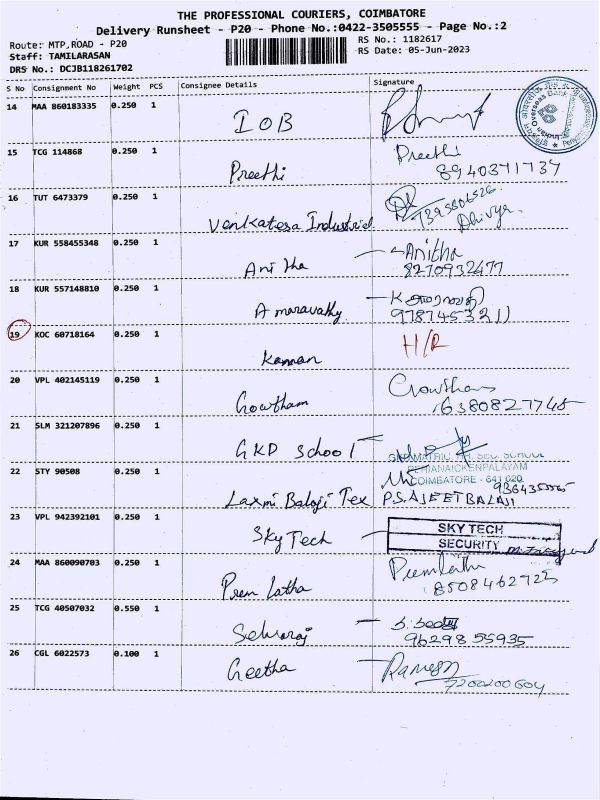 THE PROFESSIONAL COURIERS, COIMBATORE
Delivery Runsheet - P20 - Phone No.:0422-3505555 - Page No.:2
Route: MTP,ROAD - P20
RS No.: 1182617
Staff: TAMILARASAN
RS Date: 05-Jun-2023
DRS No.: DCJB118261702
S No Consignment No Weight PCS Consignee Details Signature
14 MAA 860183335 0.250 1 IOB
15 TCG 114868 0.250 1 Preethi Preethi
8940371737
16 TUT 6473379 0.250 1 Venkatesa Industrial
Dhivya
17 KUR 558455348 0.250 1 Anitha Anitha
8270932477
18 KUR 557148810 0.250 1 Amaravathy K அமராவதி
9787453211
19 KOC 60718164 0.250 1 Kannan H/R
20 VPL 402145119 0.250 1 Gowtham Gowtham
6380827745
21 SLM 321207896 0.250 1 GKD School
GKD MATRIC. HR. SEC. SCHOOL
PERIANAICKENPALAYAM
COIMBATORE - 641 020
22 STY 90508 0.250 1 Laxmi Balaji Tex P.S.AJEET BALAJI
23 VPL 942392101 0.250 1 Sky Tech SKY TECH
SECURITY
24 MAA 860090703 0.250 1 Prem Latha Premlatha
8508462725
25 TCG 40507032 0.550 1 Selvaraj
9629855935
26 CGL 6022573 0.100 1 Geetha Ramesh
7200200604